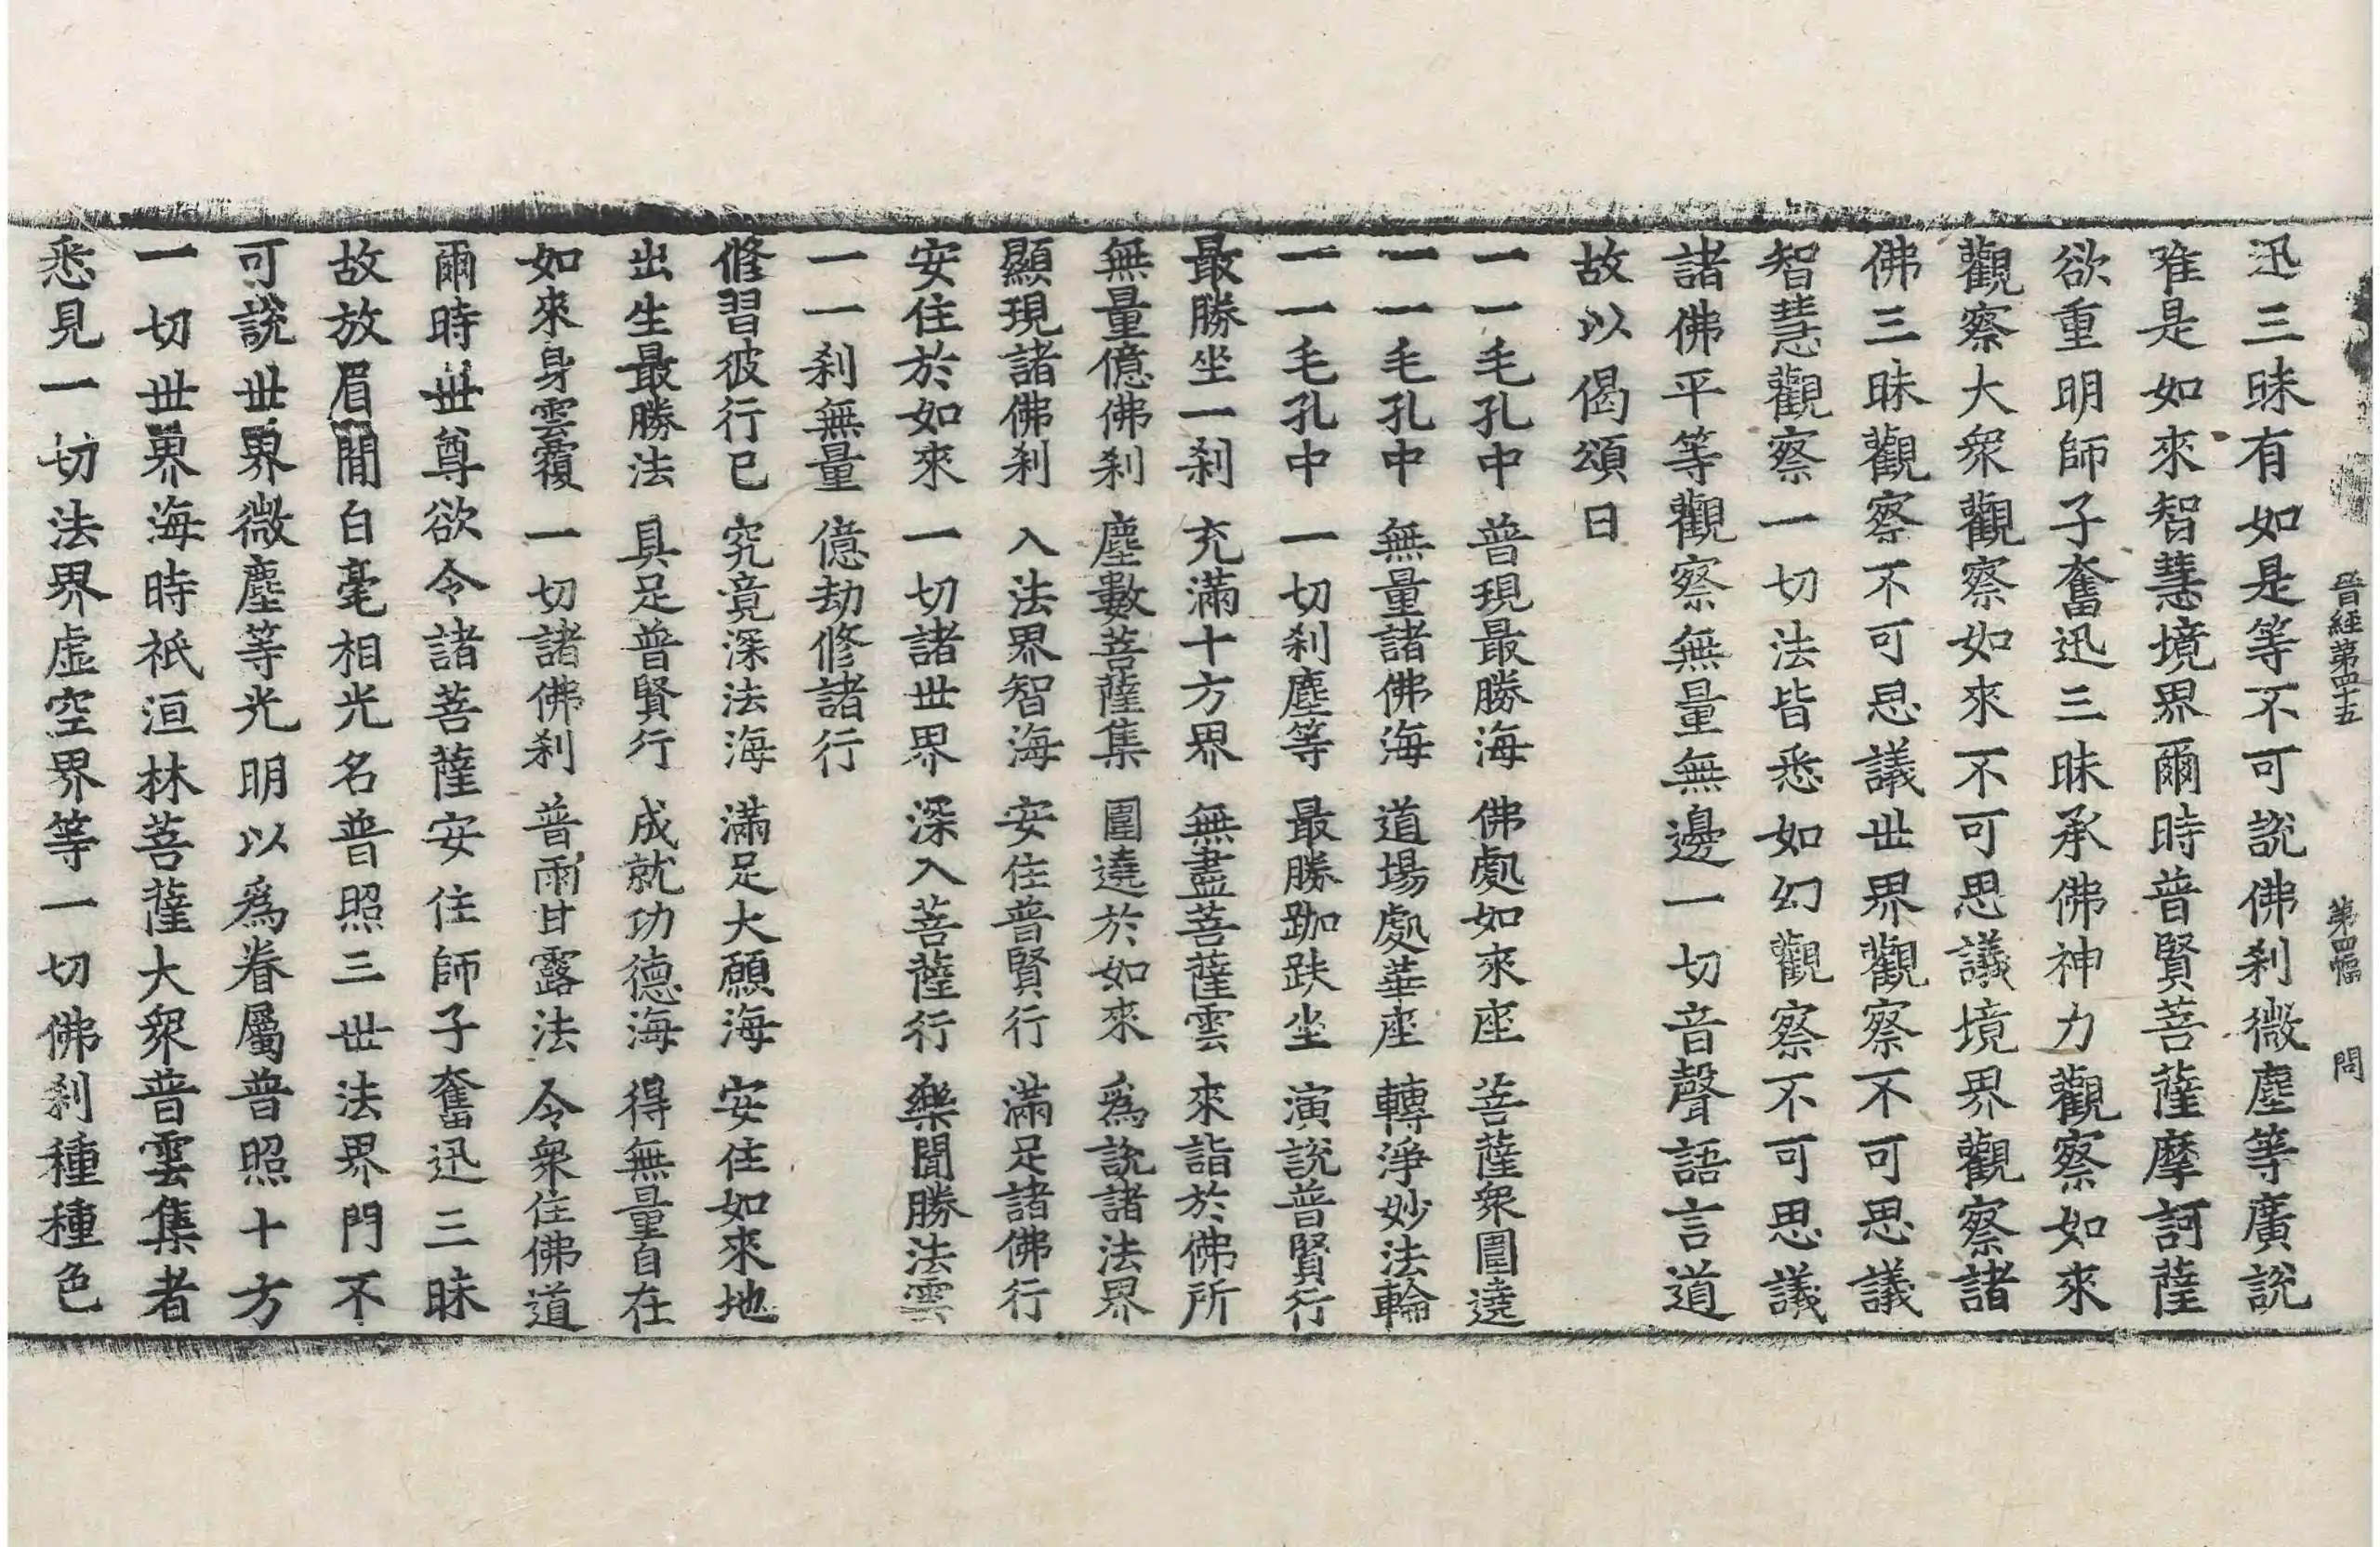 晉経第四十五 第四幅 問
迅三昧有如是等不可說佛刹微塵等廣說
唯是如來智慧境界爾時普賢菩薩摩訶薩
欲重明師子奮迅三昧承佛神力觀察如來
觀察大衆觀察如來不可思議境界觀察諸
佛三昧觀察不可思議世界觀察不可思議
智慧觀察一切法皆悉如幻觀察不可思議
諸佛平等觀察無量無邊一切音聲語言道
故以偈頌曰
一一毛孔中 普現最勝海 佛處如來座 菩薩衆圍遶
一一毛孔中 無量諸佛海 道場處華座 轉淨妙法輪
一一毛孔中 一切刹塵等 最勝跏趺坐 演說普賢行
最勝坐一刹 充滿十方界 無盡菩薩雲 來詣於佛所
無量億佛刹 塵數菩薩集 圍遶於如來 爲說諸法界
顯現諸佛刹 入法界智海 安住普賢行 滿足諸佛行
安住於如來 一切諸世界 深入菩薩行 樂聞勝法雲
一一刹無量 億劫修諸行
修習彼行已 究竟深法海 滿足大願海 安住如來地
出生最勝法 具足普賢行 成就功德海 得無量自在
如來身雲覆 一切諸佛刹 普雨甘露法 令衆住佛道
爾時世尊欲令諸菩薩安住師子奮迅三昧
故放眉間白毫相光名普照三世法界門不
可說世界微塵等光明以爲眷屬普照十方
一切世界海時祇洹林菩薩大衆普雲集者
悉見一切法界虛空界等一切佛刹種種色